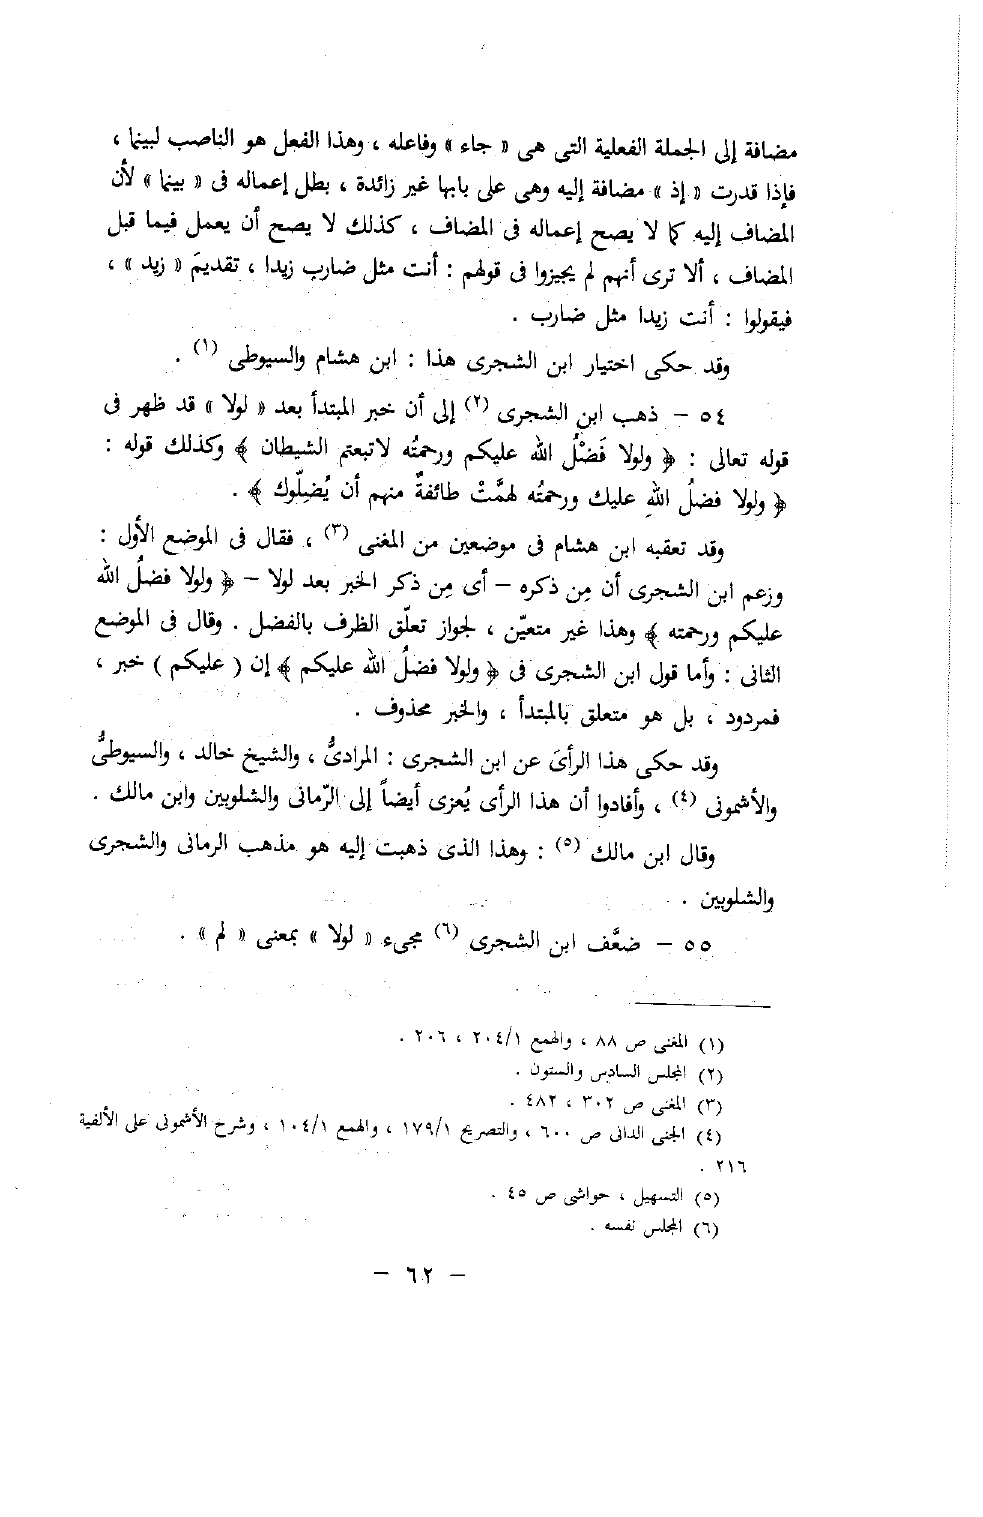 مضافة إلى الجملة الفعلية التى هى « جاء » وفاعله ، وهذا الفعل هو الناصب لبينما ،
فإذا قدرت « إذ » مضافة إليه وهى على بابها غير زائدة ، بطل إعماله فى « بينما » لأن
المضاف إليه كما لا يصح إعماله فى المضاف ، كذلك لا يصح أن يعمل فيما قبل
المضاف ، ألا ترى أنهم لم يجيزوا فى قولهم : أنت مثل ضارب زيدا ، تقديمَ « زيد » ،
فيقولوا : أنت زيدا مثل ضارب .
وقد حكى اختيار ابن الشجرى هذا : ابن هشام والسيوطى (١) .
٥٤ – ذهب ابن الشجرى (٢) إلى أن خبر المبتدأ بعد « لولا » قد ظهر فى
قوله تعالى : ﴿ ولولا فَضْلُ الله عليكم ورحمتُه لاتبعتم الشيطان ﴾ وكذلك قوله :
﴿ ولولا فضلُ اللهِ عليك ورحمتُه لهمَّتْ طائفةٌ منهم أن يُضِلّوك ﴾ .
وقد تعقبه ابن هشام فى موضعين من المغنى (٣) ، فقال فى الموضع الأول :
وزعم ابن الشجرى أن مِن ذكره – أى مِن ذكر الخبر بعد لولا – ﴿ ولولا فضلُ الله
عليكم ورحمته ﴾ وهذا غير متعيّن ، لجواز تعلّق الظرف بالفضل . وقال فى الموضع
الثانى : وأما قول ابن الشجرى فى ﴿ ولولا فضلُ الله عليكم ﴾ إن ( عليكم ) خبر ،
فمردود ، بل هو متعلق بالمبتدأ ، والخبر محذوف .
وقد حكى هذا الرأىَ عن ابن الشجرى : المرادىُّ ، والشيخ خالد ، والسيوطىُّ
والأشمونى (٤) ، وأفادوا أن هذا الرأى يُعزى أيضاً إلى الرّمانى والشلوبين وابن مالك .
وقال ابن مالك (٥) : وهذا الذى ذهبت إليه هو مذهب الرمانى والشجرى
والشلوبين .
٥٥ – ضعَّف ابن الشجرى (٦) مجىء « لولا » بمعنى « لم » .
(١) المغنى ص ٨٨ ، والهمع ٢٠٤/١ ، ٢٠٦ .
(٢) المجلس السادس والستون .
(٣) المغنى ص ٣٠٢ ، ٤٨٢ .
(٤) الجنى الدانى ص ٦٠٠ ، والتصريح ١٧٩/١ ، والهمع ١٠٤/١ ، وشرح الأشمونى على الألفية
٢١٦ .
(٥) التسهيل ، حواشى ص ٤٥ .
(٦) المجلس نفسه .
– ٦٢ –